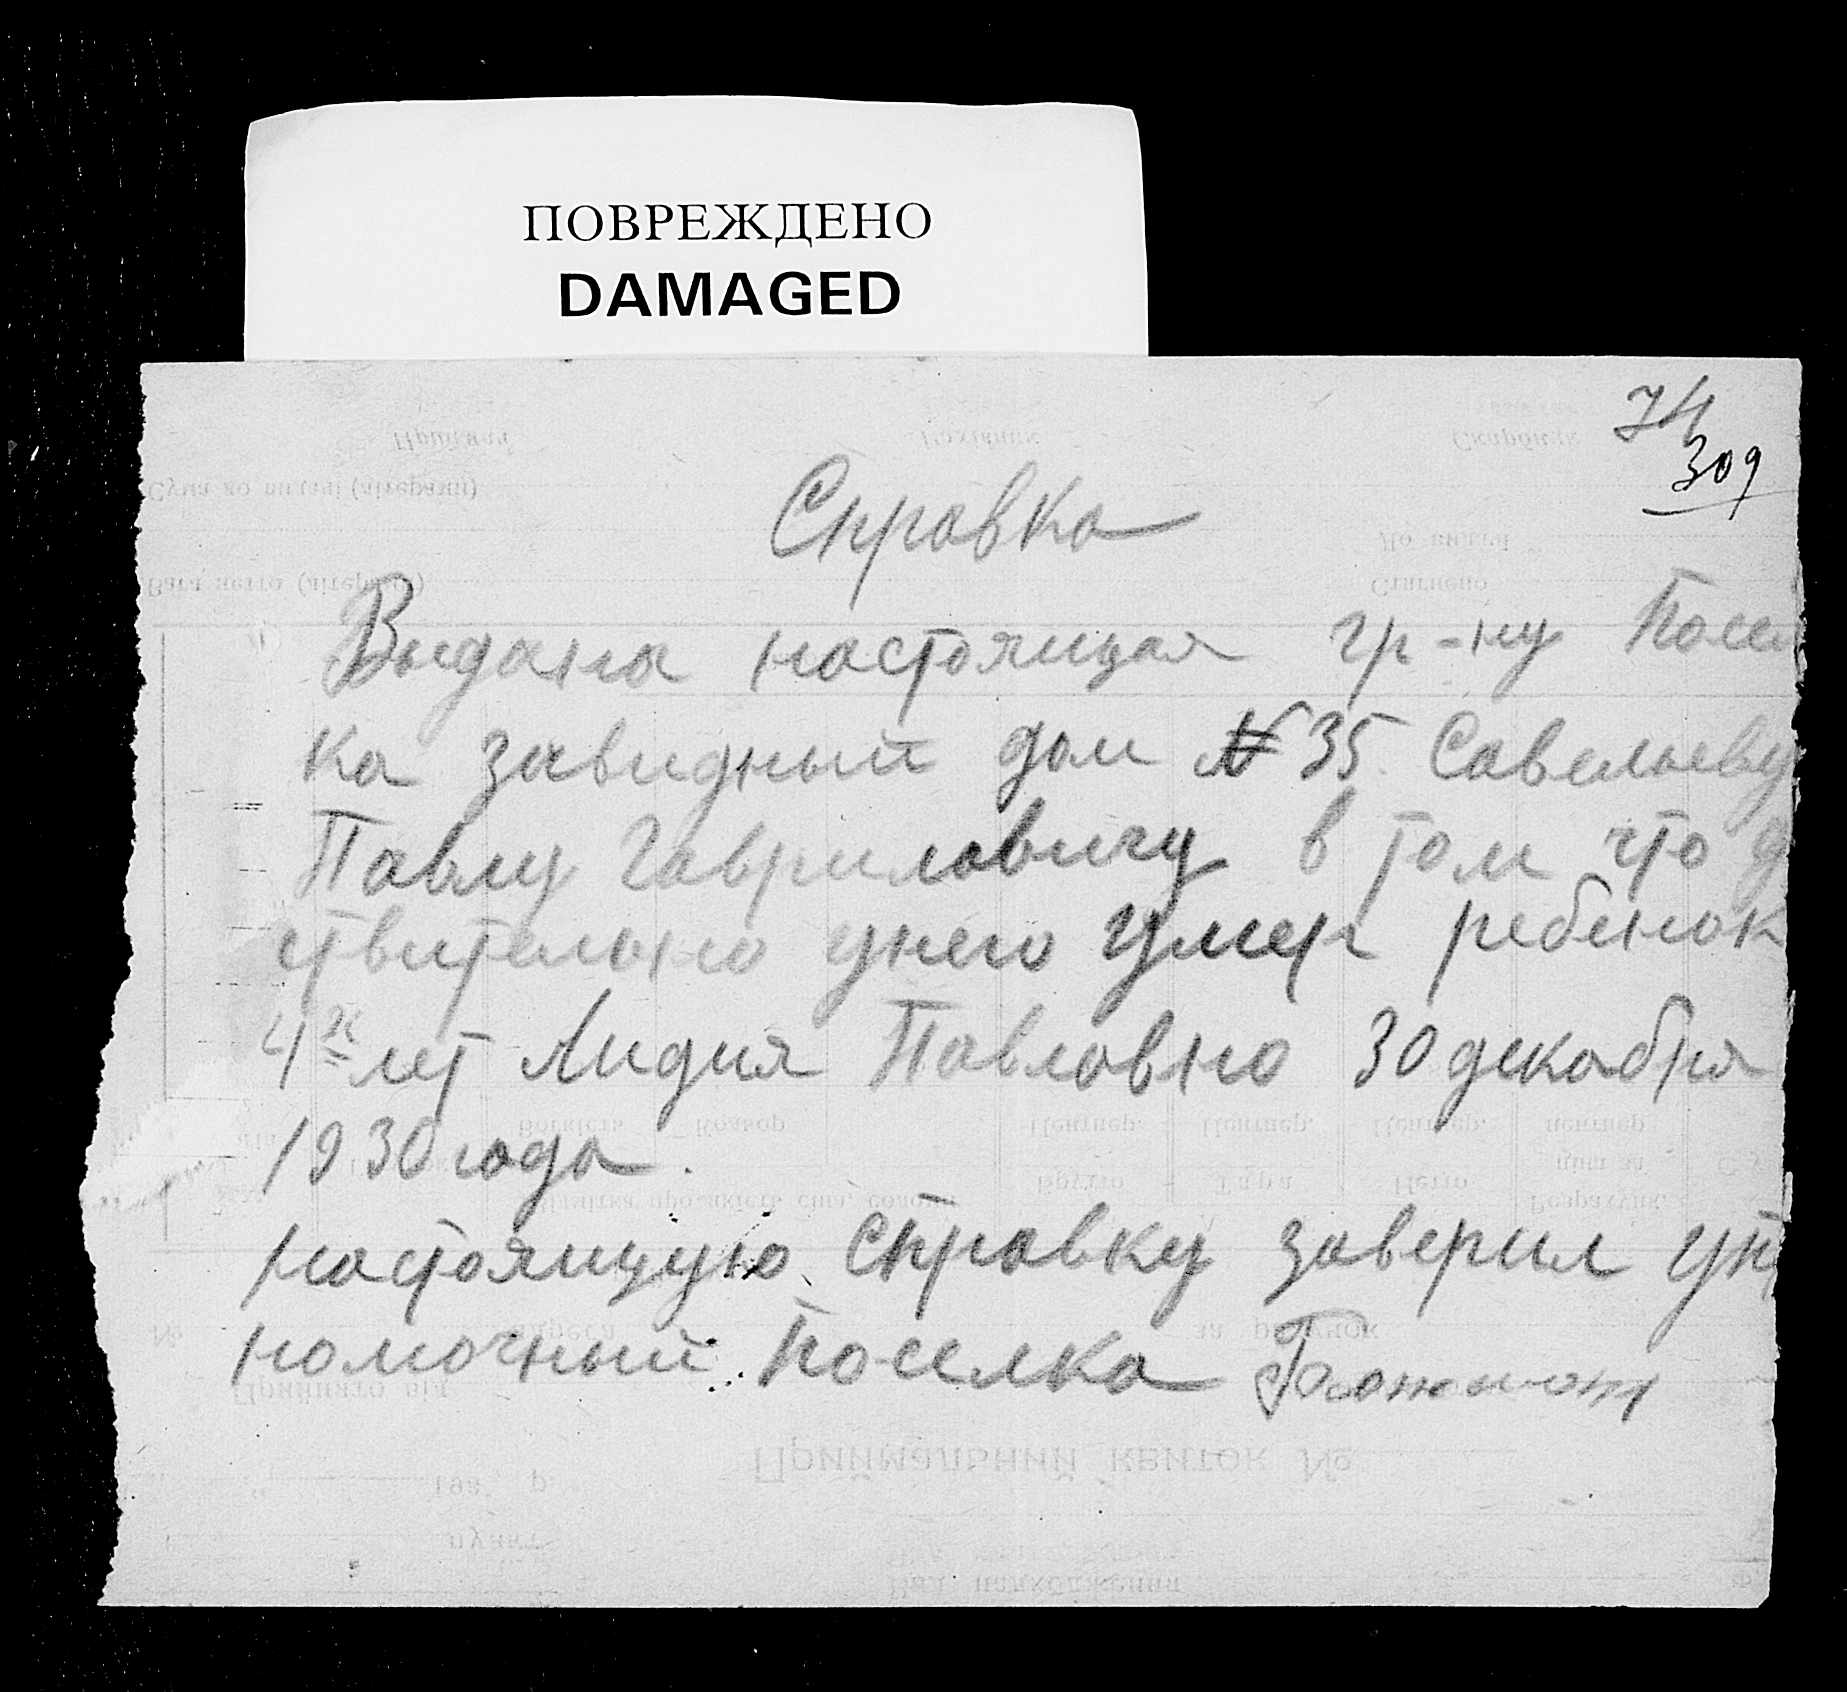 ПОВРЕЖДЕНО
DAMAGED
74
309
Справка
Выдана настоящая гр-ну Посел
ка завидный дом № 35 Савельеву
Павлу Гавриловичу в том что д
ствительно унего умер ребенок
4х лет Лидия Павловна 30 декабря
1930 года.
настоящую справку заверил уп
номочный Поселка
Приймальний квиток №